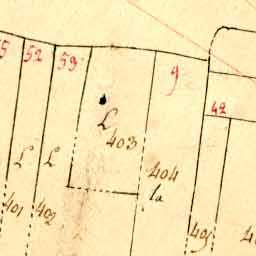 52
53
9
42
L
403
L
L
404
la
401
402